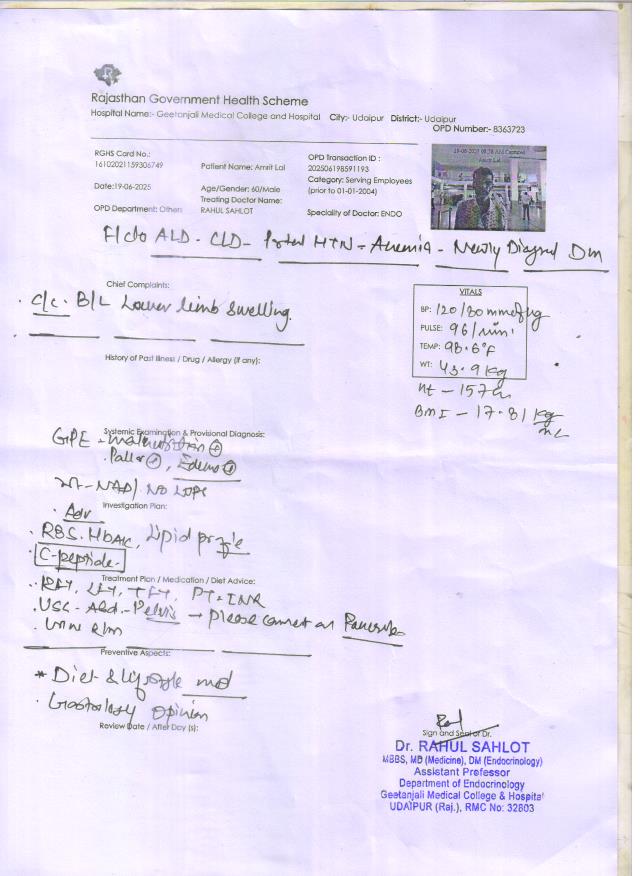 Rajasthan Government Health Scheme
Hospital Name:- Geetanjali Medical College and Hospital City:- Udaipur District:- Udaipur
OPD Number:- 8363723
RGHS Card No.:
16102021159306749
Patient Name: Amrit Lal
OPD Transaction ID :
202506198591193
Category: Serving Employees
(prior to 01-01-2004)
Date:19-06-2025
Age/Gender: 60/Male
Treating Doctor Name:
RAHUL SAHLOT
OPD Department: Others
Speciality of Doctor: ENDO
H/c/o ALD - CLD - Portal HTN - Anemia - Newly Diagnosed Dm
Chief Complaints:
C/C. B/L Lower limb swelling.
VITALS
BP: 120/80 mmofHg
PULSE: 96/min.
TEMP: 98.6°F
WT: 43.9 kg
Ht - 157 cm
BMI - 17.81 kg/m2
History of Past Illness / Drug / Allergy (if any):
Systemic Examination & Provisional Diagnosis:
GPE - Malnutrition (+)
Pallor (+), Edema (+)
NAD/ NO
Investigation Plan:
Adv
RBS. HbA1c, Lipid profile
C-peptide.
Treatment Plan / Medication / Diet Advice:
RFT, LFT, TFT, PT-INR
USG - Abd.-Pelvis → please comment on Pancreas
Urine R/m
Preventive Aspects:
* Diet & lifestyle mod
Gastrology opinion
Review Date / After Day (s):
Sign and Seal of Dr.
Dr. RAHUL SAHLOT
MBBS, MD (Medicine), DM (Endocrinology)
Assistant Professor
Department of Endocrinology
Geetanjali Medical College & Hospital
UDAIPUR (Raj.), RMC No: 32803